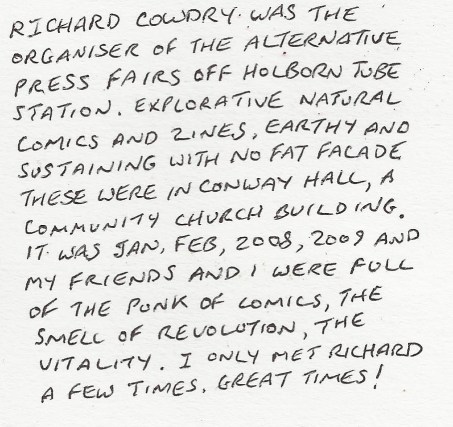 RICHARD COWDRY WAS THE
ORGANISER OF THE ALTERNATIVE
PRESS FAIRS OFF HOLBORN TUBE
STATION. EXPLORATIVE NATURAL
COMICS AND ZINES, EARTHY AND
SUSTAINING WITH NO FAT FACADE
THESE WERE IN CONWAY HALL, A
COMMUNITY CHURCH BUILDING.
IT WAS JAN, FEB, 2008, 2009 AND
MY FRIENDS AND I WERE FULL
OF THE PUNK OF COMICS, THE
SMELL OF REVOLUTION, THE
VITALITY. I ONLY MET RICHARD
A FEW TIMES. GREAT TIMES!